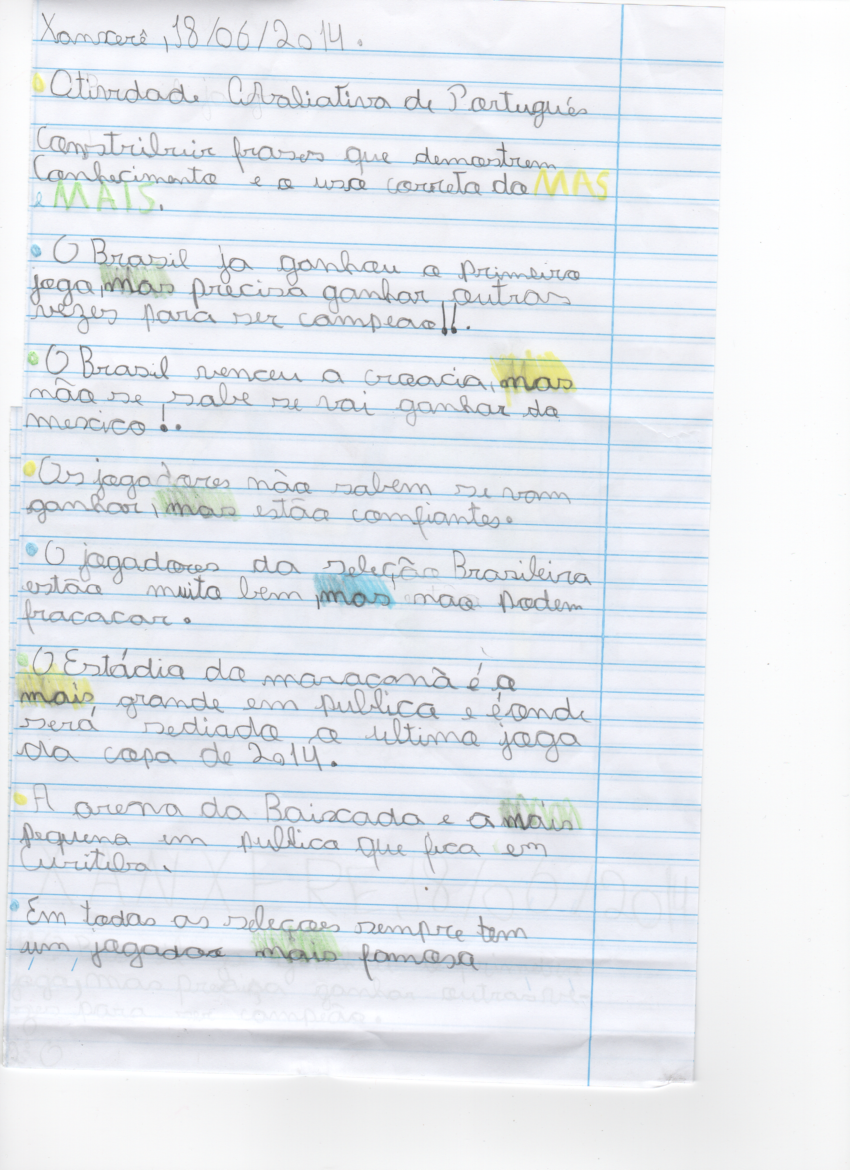 Xanxerê, 18/06/2014.
Atividade Avaliativa de Português
Constribuir frases que demostrem
Conhecimento e o uso correto do MAS
e MAIS.
O Brasil ja ganhou o primeiro
jogo, mas precisa ganhar outras
vezes para ser campeao!!.
O Brasil venceu a croacia, mas
não se sabe se vai ganhar do
mexico!.
Os jogadores não sabem se vam
ganhar, mas estão comfiantes.
O jogadores da seleção Brasileira
estão muito bem, mas nao podem
fracacar.
O Estádio do maracanà é o
mais grande em publico e é onde
será sediado o ultimo jogo
da copa de 2014.
A arena da Baixada e a mais
pequena em publico que fica em
Curitiba.
Em todas as seleçoes sempre tem
um jogador mais famoso